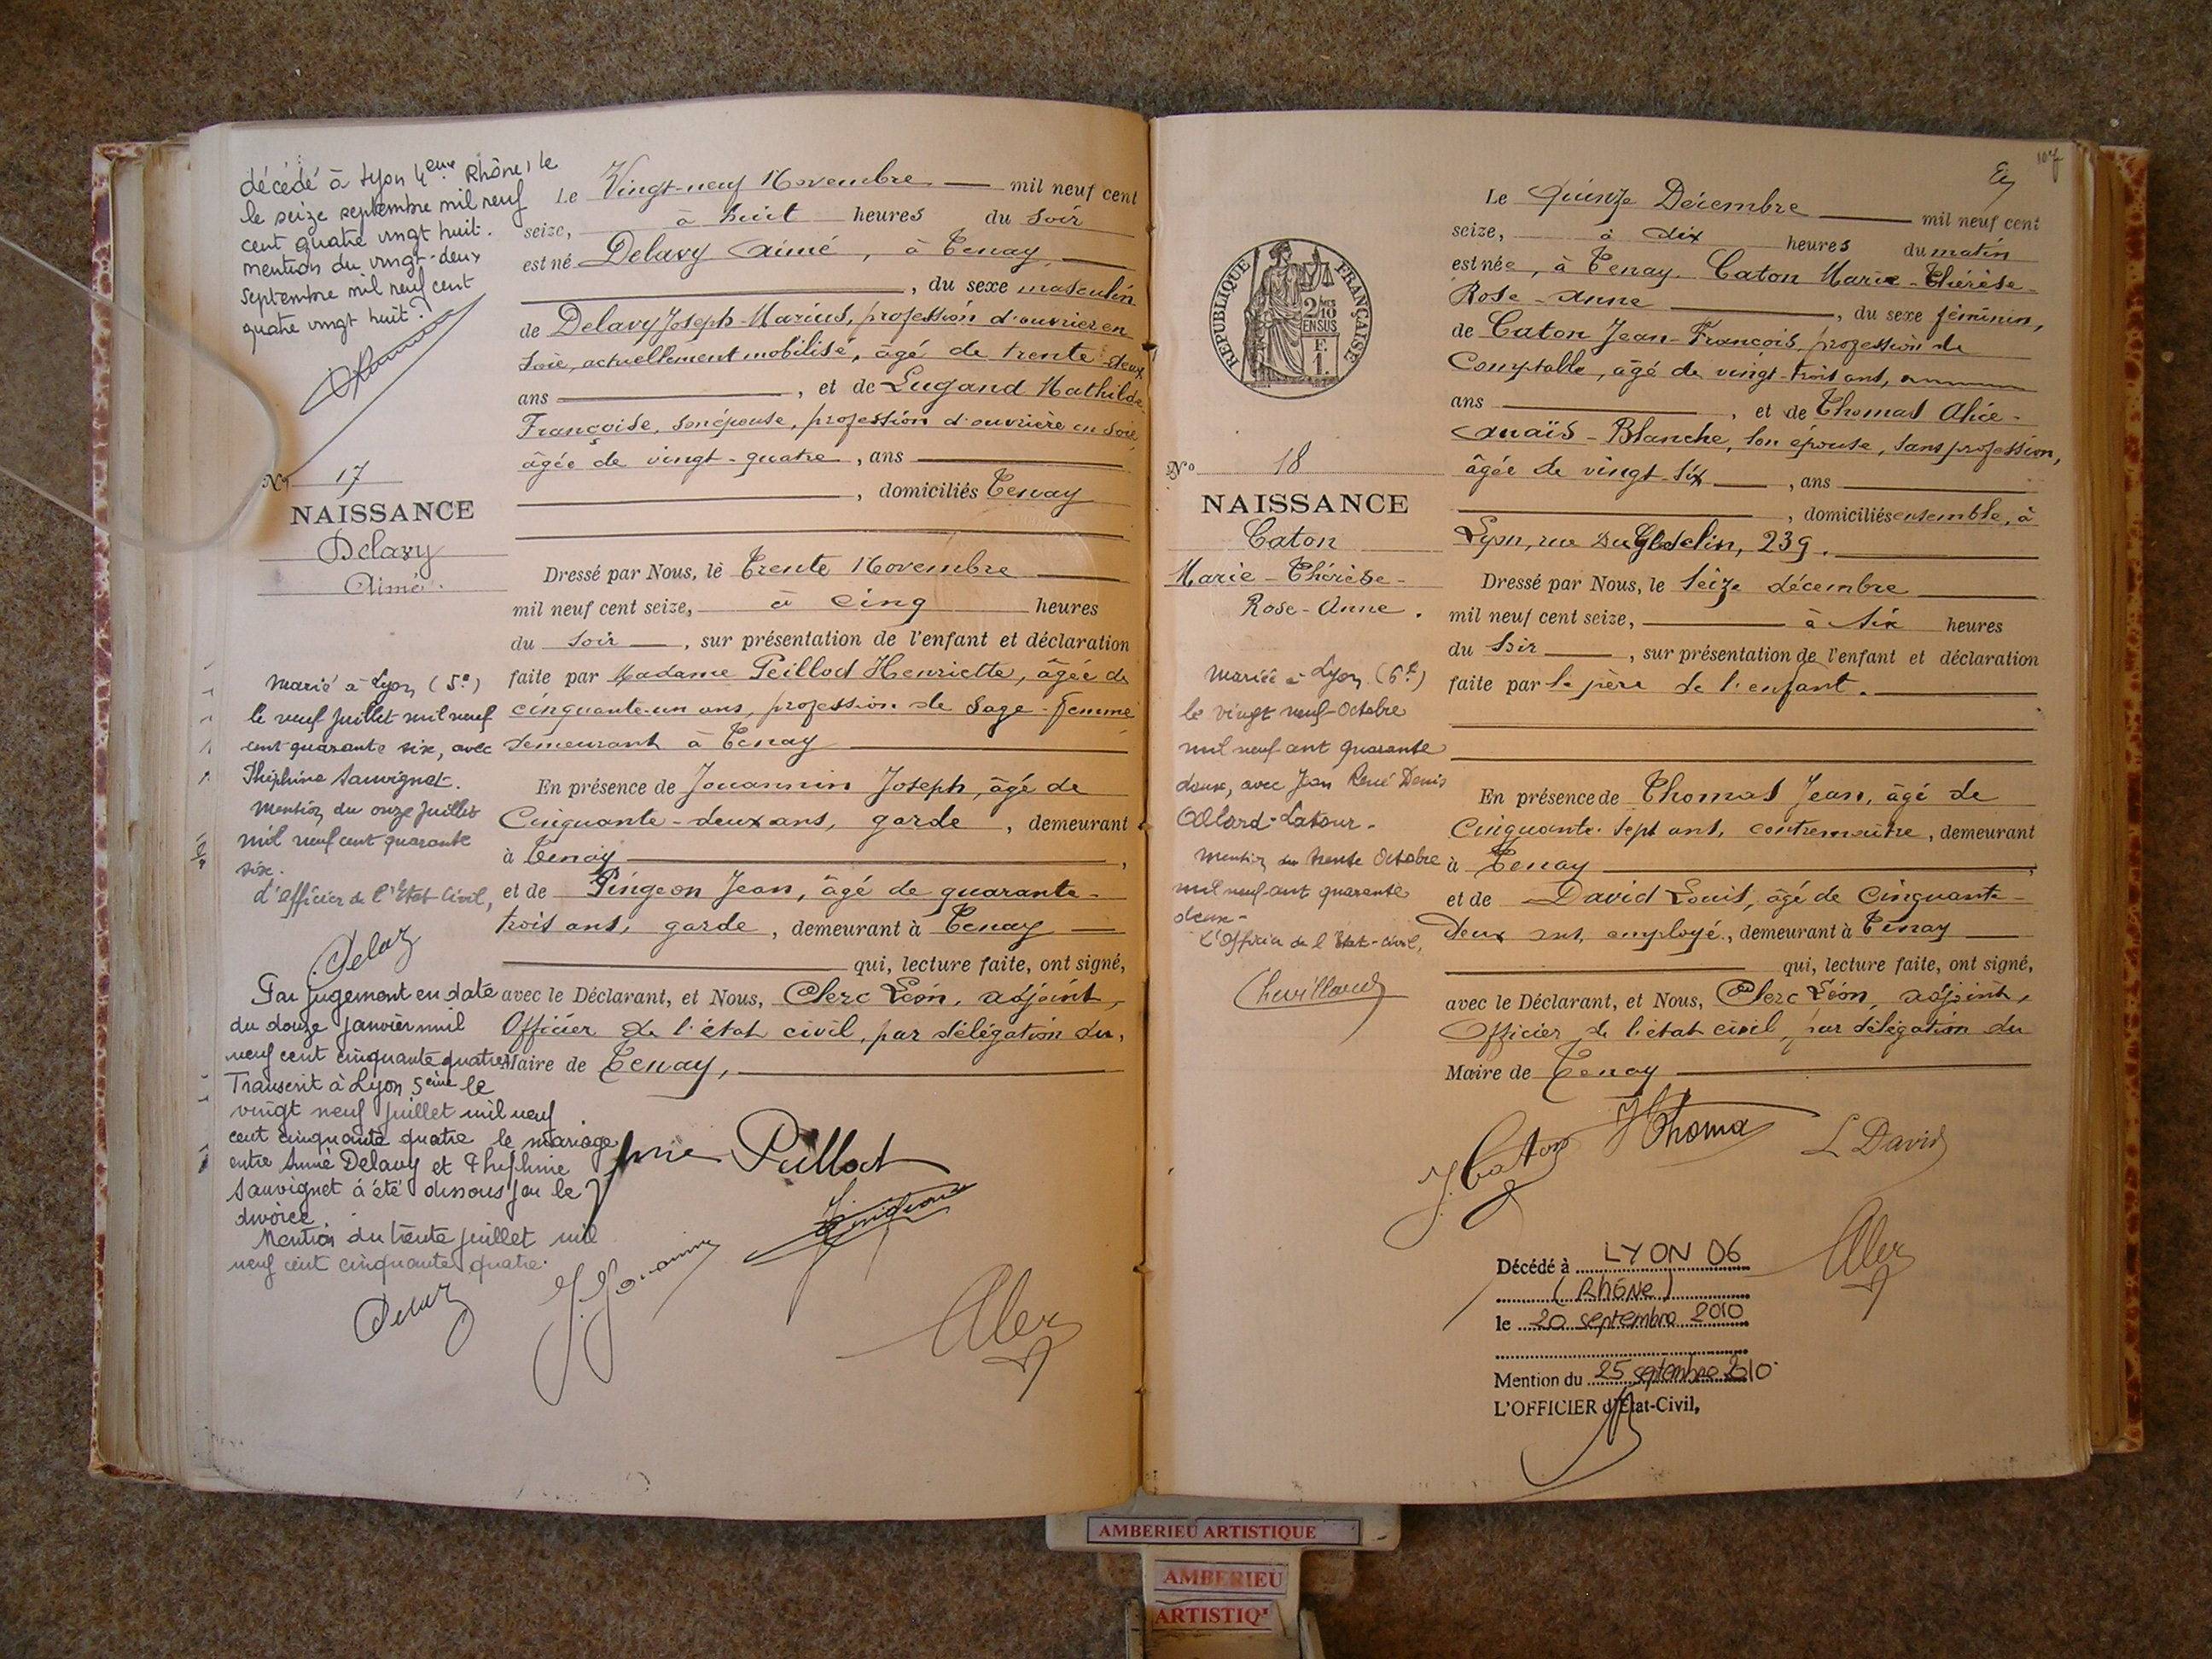 décédé à Lyon 4eme Rhône, le
le seize septembre mil neuf
cent quatre vingt huit.
mention du vingt-deux
septembre mil neuf cent
quatre vingt huit.
No 17
NAISSANCE
Delavy
Aimé.
Marié à Lyon (5e)
le neuf juillet mil neuf
cent quarante six, avec
Sauvignet.
Mention du onze juillet
mil neuf cent quarante
six.
L'officier de l'Etat Civil,
Par jugement en date
du douze janvier mil
neuf cent cinquante quatre
Transcrit à Lyon 5eme le
vingt neuf juillet mil neuf
cent cinquante quatre le mariage
entre Aimé Delavy et
Sauvignet a été dissous par le
divorce.
Mention du trente juillet mil
neuf cent cinquante quatre.
Le Vingt-neuf Novembre mil neuf cent
seize, à huit heures du soir
est né Delavy Aimé, à Tenay,
, du sexe masculin
de Delavy Joseph-Marius, profession d'ouvrier en
soie, actuellement mobilisé, âgé de trente-deux
ans , et de Lugand Mathilde
Françoise, son épouse, profession d'ouvrière en soie
âgée de vingt-quatre , ans
, domiciliés Tenay
Dressé par Nous, le Trente Novembre
mil neuf cent seize, à cinq heures
du soir , sur présentation de l'enfant et déclaration
faite par Madame Peillod Henriette, âgée de
cinquante-un ans, profession de Sage-femme
demeurant à Tenay
En présence de Jouannin Joseph, âgé de
Cinquante-deux ans, garde , demeurant
à Tenay ,
et de Pingeon Jean, âgé de quarante-
trois ans, garde , demeurant à Tenay
qui, lecture faite, ont signé,
avec le Déclarant, et Nous, Clerc Léon, adjoint,
Officier de l'état civil, par délégation du,
Maire de Tenay,
Peillod
J. Jouannin
Clerc
107
Le Quinze Décembre mil neuf cent
seize, à dix heures du matin
est née, à Tenay Caton Marie-Thérèse-
Rose-Anne , du sexe féminin,
de Caton Jean-François, profession de
Comptable, âgé de vingt-trois ans,
ans , et de Thomas Alice-
Anaïs-Blanche, son épouse, sans profession,
âgée de vingt-six , ans
, domiciliés ensemble, à
Lyon, rue Duguesclin, 239.
Dressé par Nous, le Seize décembre
mil neuf cent seize, à six heures
du soir , sur présentation de l'enfant et déclaration
faite par le père de l'enfant.
En présence de Thomas Jean, âgé de
Cinquante-sept ans, contremaître, demeurant
à Tenay ,
et de David Louis, âgé de Cinquante-
deux ans, employé, demeurant à Tenay
qui, lecture faite, ont signé,
avec le Déclarant, et Nous, Clerc Léon, adjoint,
Officier de l'état civil, par délégation du
Maire de Tenay
J. Caton
J Thomas
L David
Clerc
REPUBLIQUE FRANÇAISE
2/10 EN SUS
F. 1.
No 18
NAISSANCE
Caton
Marie-Thérèse-
Rose-Anne.
Mariée à Lyon (6e)
le vingt neuf-Octobre
mil neuf cent quarante
deux, avec Jean René Denis
Allard-Latour.
Mention du trente Octobre
mil neuf cent quarante
deux-
L'Officier de l'Etat-Civil,
Décédé à LYON 06
(RHÔNE)
le 20 septembre 2010
Mention du 25 septembre 2010
L'OFFICIER d'Etat-Civil,
AMBERIEU ARTISTIQUE
AMBERIEU
ARTISTIQ